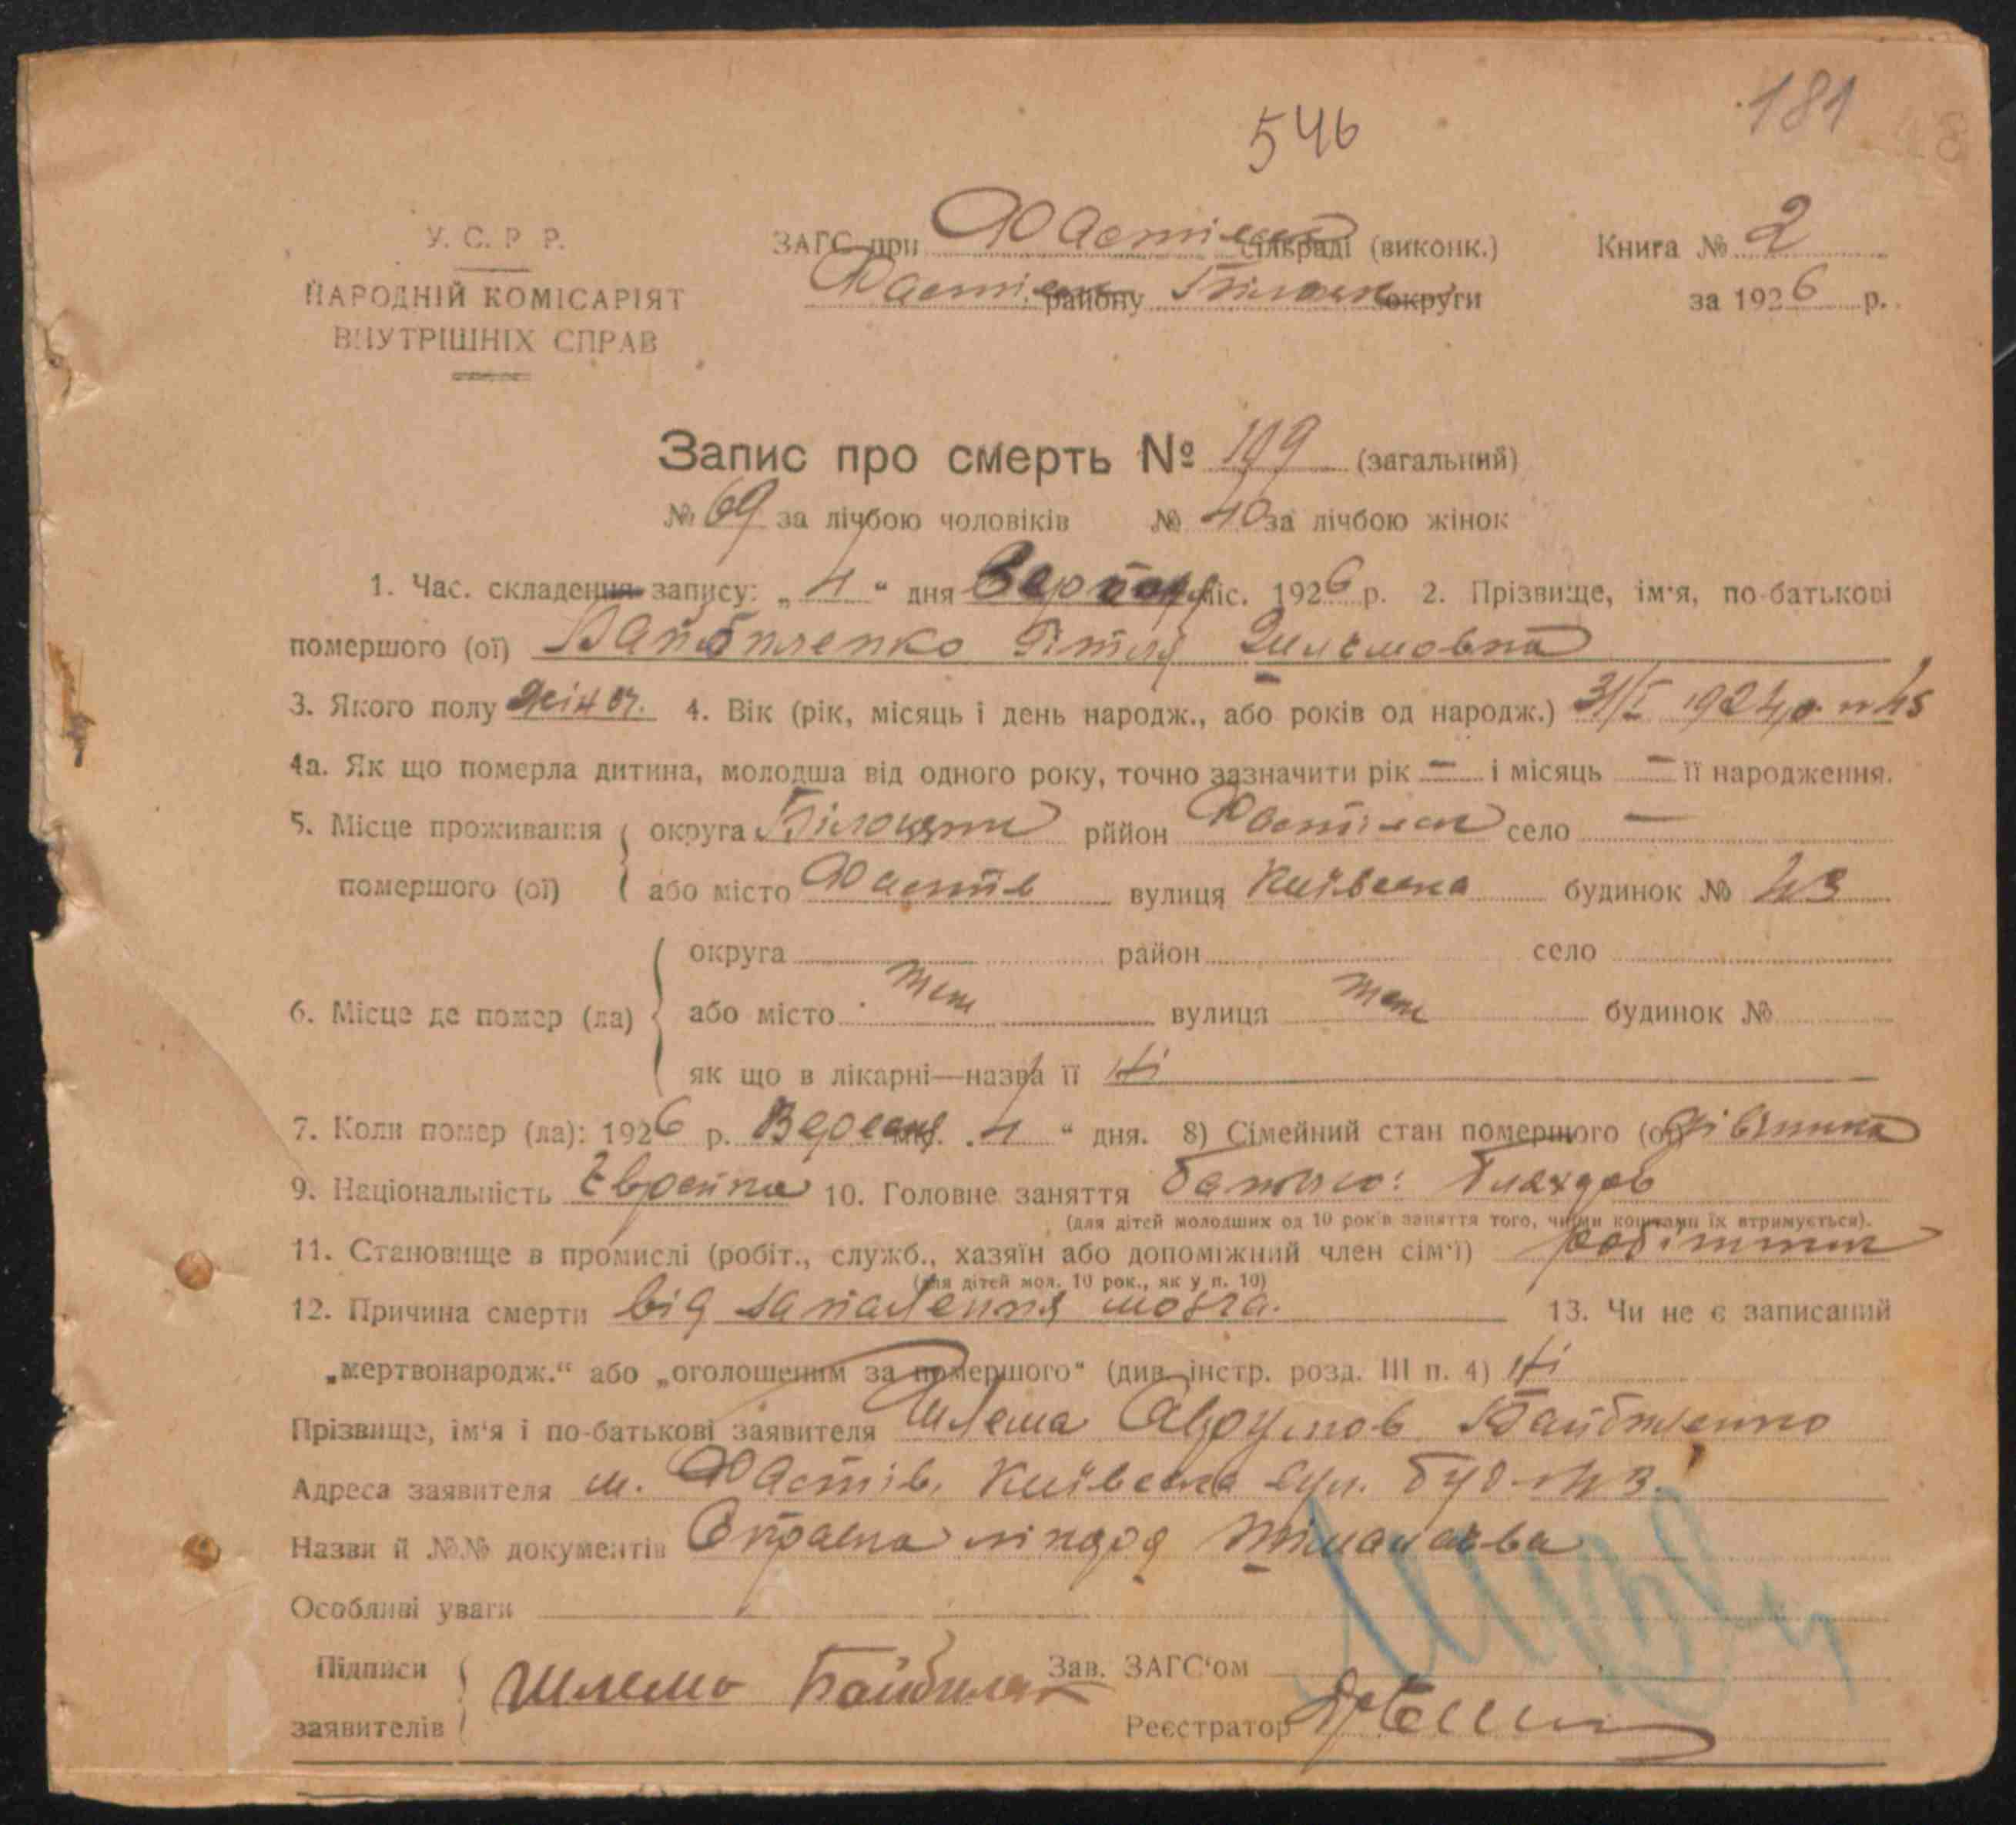 546
181
У. С. Р. Р.
НАРОДНІЙ КОМІСАРІЯТ
ВНУТРІШНІХ СПРАВ
ЗАГС при Фастівськ сільраді (виконк.)
Фастівськ району Білоцерк округи
Книга № 2
за 1926 р.
Запис про смерть № (загальний)
№ 69 за лічбою чоловіків № 40 за лічбою жінок
1. Час. складення запису: „ 4 “ дня міс. 1926 р. 2. Прізвище, ім'я, по-батькові
помершого (ої) Шлемовна
3. Якого полу жіноч. 4. Вік (рік, місяць і день народж., або років од народж.) 31/I 1924
4а. Як що померла дитина, молодша від одного року, точно зазначити рік — і місяць — її народження.
5. Місце проживання округа Білоцерк рййон Фастівськ село —
помершого (ої) або місто Фастів вулиця Київська будинок № 43
округа район село
6. Місце де помер (ла) або місто теж вулиця теж будинок №
як що в лікарні—назва її Ні
7. Коли помер (ла): 1926 р. Вересня міс. „ 4 “ дня. 8) Сімейний стан помершого (ої) дівчинка
9. Національність Єврейка 10. Головне заняття батько:
(для дітей молодших од 10 років заняття того, чиїми коштами їх втримується).
11. Становище в промислі (робіт., служб., хазяїн або допоміжний член сім'ї) робітник
(для дітей мол. 10 рок., як у п. 10)
12. Причина смерти від запалення мозга. 13. Чи не є записаний
„мертвонародж.“ або „оголошеним за помершого“ (див. інстр. розд. III п. 4) Ні
Прізвище, ім'я і по-батькові заявителя Шлема
Адреса заявителя м. Фастів, Київська вул. буд. № 43.
Назви й №№ документів
Особливі уваги
Підписи
заявителів
Шлема
Зав. ЗАГС'ом
Реєстратор